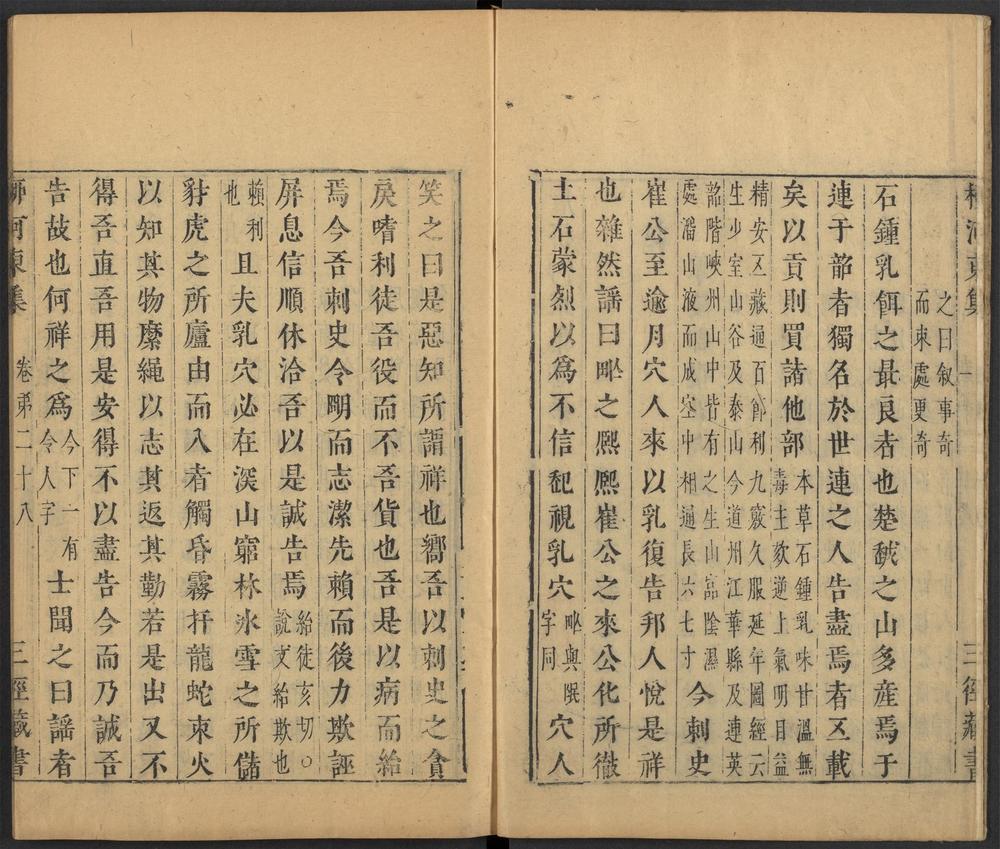 柳河東集
三徑藏書
之曰叙事奇
而束處更奇
石鍾乳餌之最良者也楚越之山多產焉于
連于韶者獨名於世連之人告盡焉者五載
矣以貢則買諸他部本草石鍾乳味甘溫無
毒主欬逆上氣明目益
精安五藏通百節利九竅久服延年圖經云
生少室山谷及泰山今道州江華縣及連英
韶階峽州山中皆有之生山嵓陰濕
處溜山液而成空中相通長六七寸今刺史
崔公至逾月穴人來以乳復告邦人悅是祥
也雜然謠曰甿之熙熙崔公之來公化所徹
土石蒙烈以爲不信起視乳穴甿與㞾穴人
字同
笑之曰是惡知所謂祥也嚮吾以刺史之貪
戾嗜利徒吾役而不吾貨也吾是以病而紿
焉今吾刺史令明而志潔先賴而後力欺誣
屏息信順休洽吾以是誠告焉紿徒亥切○
說文紿欺也
賴利
也且夫乳穴必在深山窮林冰雪之所儲
豺虎之所廬由而入者觸昏霧扞龍蛇束火
以知其物縻繩以志其返其勤若是出又不
得吾直吾用是安得不以盡告今而乃誠吾
告故也何祥之爲今下一有
令人字士聞之曰謠者
柳河東集
卷第二十八
三徑藏書